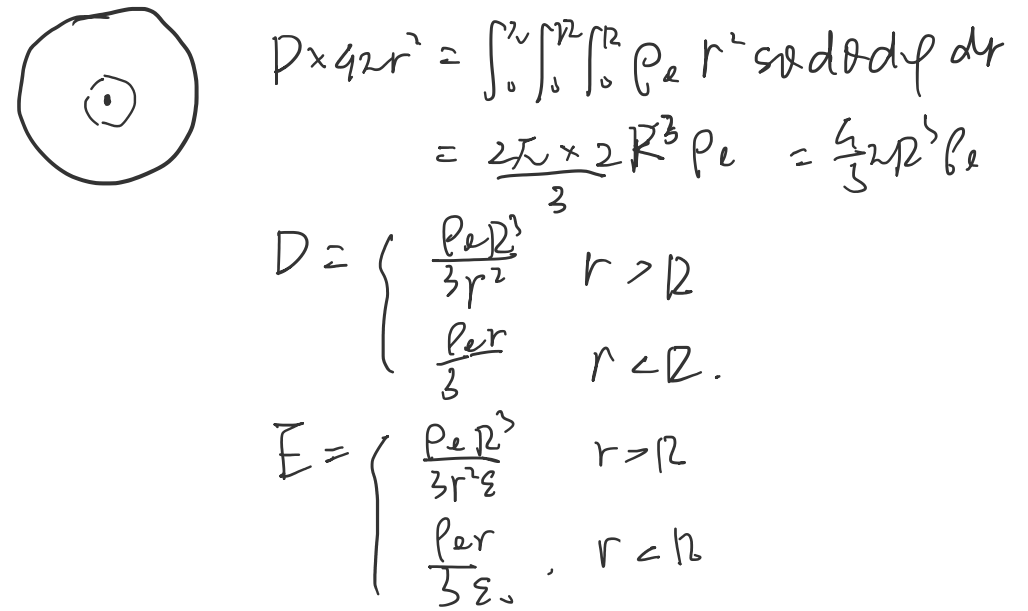 D×4πr² = ∫₀^π ∫₀^2π ∫₀^R ρe r² sinθ dθ dφ dr
= 2π×2R³ρe / 3 = 4/3 πR³ρe
D = { ρeR³ / 3r² r > R
ρer / 3 r < R.
E = { ρeR³ / 3r²ε r > R
ρer / 3ε₀ . r < R